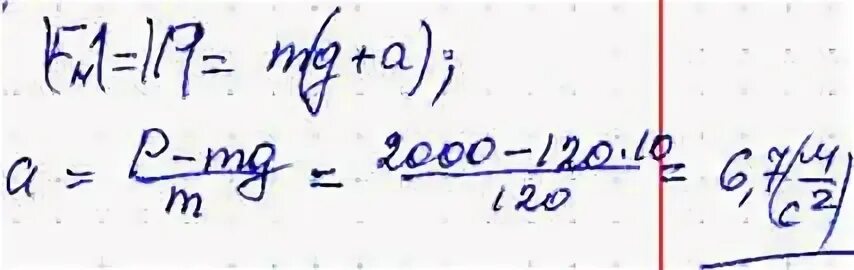 |Fн|=|P|= m(g+a);
a = (P-mg)/m = (2000-120·10)/120 = 6,7(м/с²)